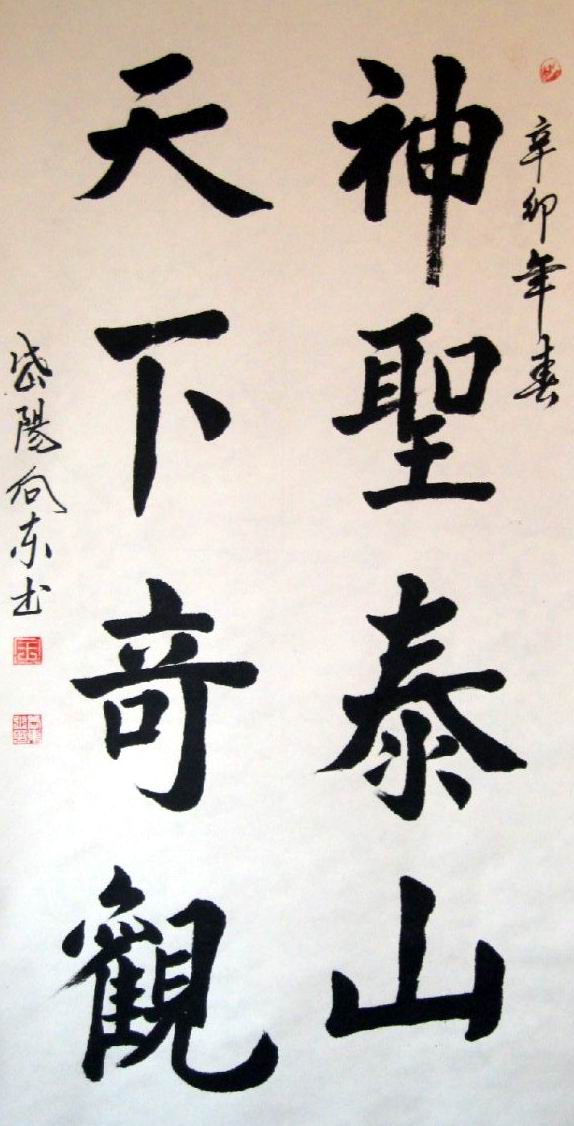 辛卯年春
神聖泰山
天下奇觀
岱陽向东书